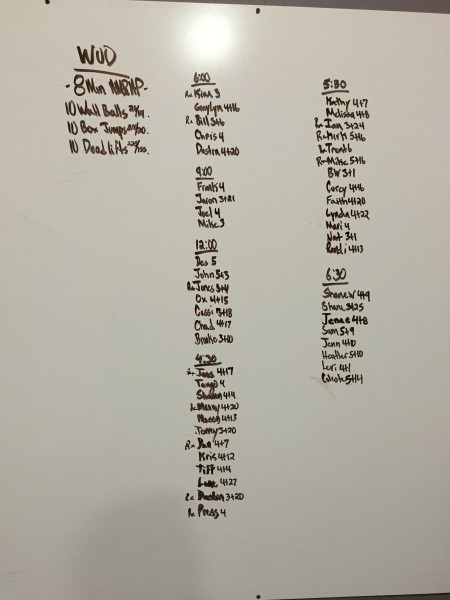 WOD
- 8 Min AMRAP -
10 Wall Balls 20/14.
10 Box Jumps
10 Deadlifts 225/155.
6:00
Rx Kim 3
Gaylyn 4+16
Rx Bill 3+6
Chris 4
Dustin 4+20
9:00
Frank 4
Jason 3+21
Joel 4
Mike 3
12:00
Des 5
John 5+3
Rx Jones 3+4
Ox 4+15
Cassi 3+18
Chad 4+17
Brooke 3+10
4:30
Joas 4+17
Tango 4
Shawn 4+4
Rx Manny 4+20
Mason 4+13
Torrey 3+20
Rx Dan 4+7
Kris 4+12
Tiff 4+4
Lane 4+27
Rx 3+20
Rx Press 4
5:30
Kathy 4+7
Melissa 4+8
Rx Ian 3+24
Rx Kirk 5+6
Rx Trent 6
Rx Mike 5+16
BW 3+1
Corey 4+6
Faith 4+20
Lynda 4+22
Mari 4
Nat 3+1
4+13
6:30
Shane W 4+9
Shane 3+25
Jenae 4+8
Sam 5+9
Jenn 4+10
Heather 5+10
Lori 4+1
5+14